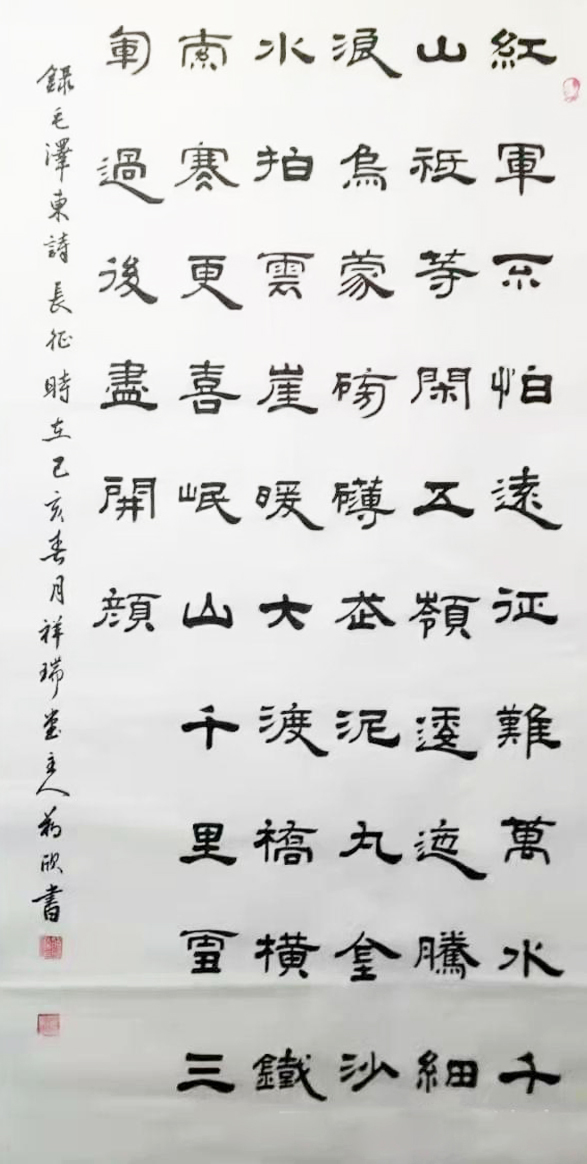 紅軍不怕遠征難萬水千
山祗等閑五嶺逶迤騰細
浪烏蒙磅礴走泥丸金沙
水拍雲崖暖大渡橋橫鐵
索寒更喜岷山千里雪三
軍過後盡開顏
錄毛澤東詩長征時在己亥春月祥瑞堂主人欣書